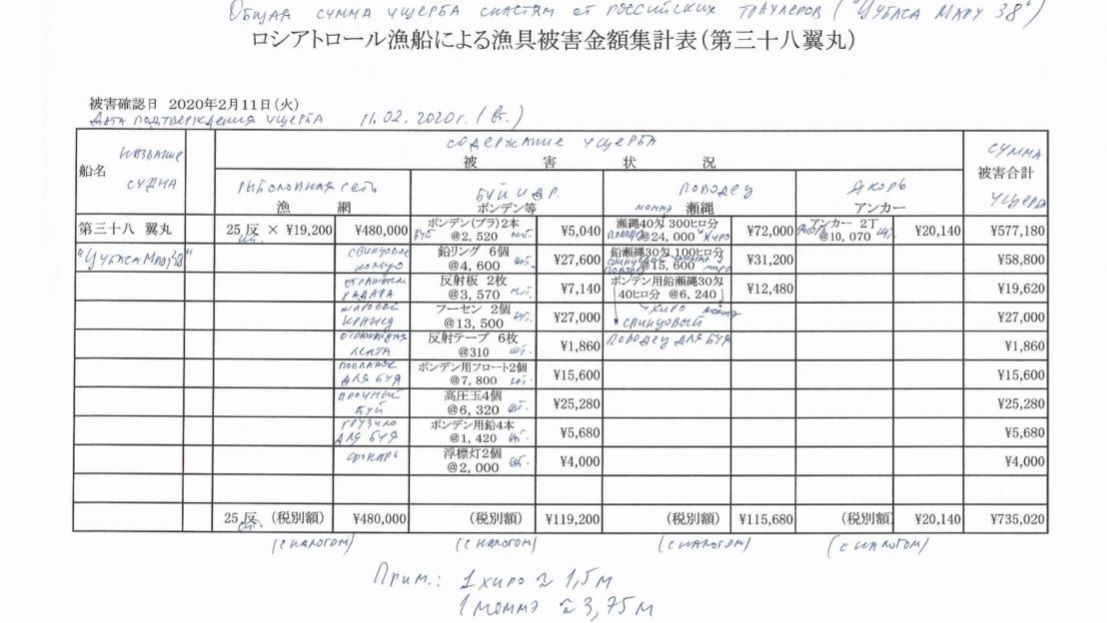 Общая сумма ущерба снастям от российских траулеров ("Цубаса Мару 38")
ロシアトロール漁船による漁具被害金額集計表(第三十八翼丸)
被害確認日 2020年2月11日(火)
Дата подтверждения ущерба 11.02.2020г. (Вт.)
船名
название судна
содержание ущерба
被害状況
сумма
被害合計
ущерба
рыболовная сеть
漁網
буй и др.
ボンデン等
поводец
瀬縄
якорь
アンカー
第三十八 翼丸
"Цубаса Мару 38"
25反 × ¥19,200 шт. ¥480,000
ボンデン(プラ)2本 @2,520 буй шт. ¥5,040
瀬縄40匁 300ヒロ分 @24,000 моммэ поводец хиро ¥72,000
アンカー 2丁 @10,070 якорь шт. ¥20,140
¥577,180
свинцовое кольцо
鉛リング 6個 @4,600 шт. ¥27,600
鉛瀬縄30匁 100ヒロ分 @15,600 ¥31,200
¥58,800
отражатель радара
反射板 2枚 @3,570 шт. ¥7,140
ボンデン用鉛瀬縄30匁 40ヒロ分 @6,240 ¥12,480
хиро моммэ
свинцовый поводец для буя
¥19,620
フーセン 2個 @13,500 шт. ¥27,000
¥27,000
лента
反射テープ 6枚 @310 шт. ¥1,860
¥1,860
поплавок для буя
ボンデン用フロート2個 @7,800 шт. ¥15,600
¥15,600
прочный буй
高圧玉4個 @6,320 шт. ¥25,280
¥25,280
грузило для буя
ボンデン用鉛4本 @1,420 шт. ¥5,680
¥5,680
фонарь
浮標灯2個 @2,000 шт. ¥4,000
¥4,000
25反 шт. (税別額) ¥480,000 (税別額) ¥119,200 (税別額) ¥115,680 (税別額) ¥20,140 ¥735,020
(с налогом) (с налогом) (с налогом) (с налогом)
Прим.: 1 хиро ≈ 1,5 м
1 моммэ ≈ 3,75 м